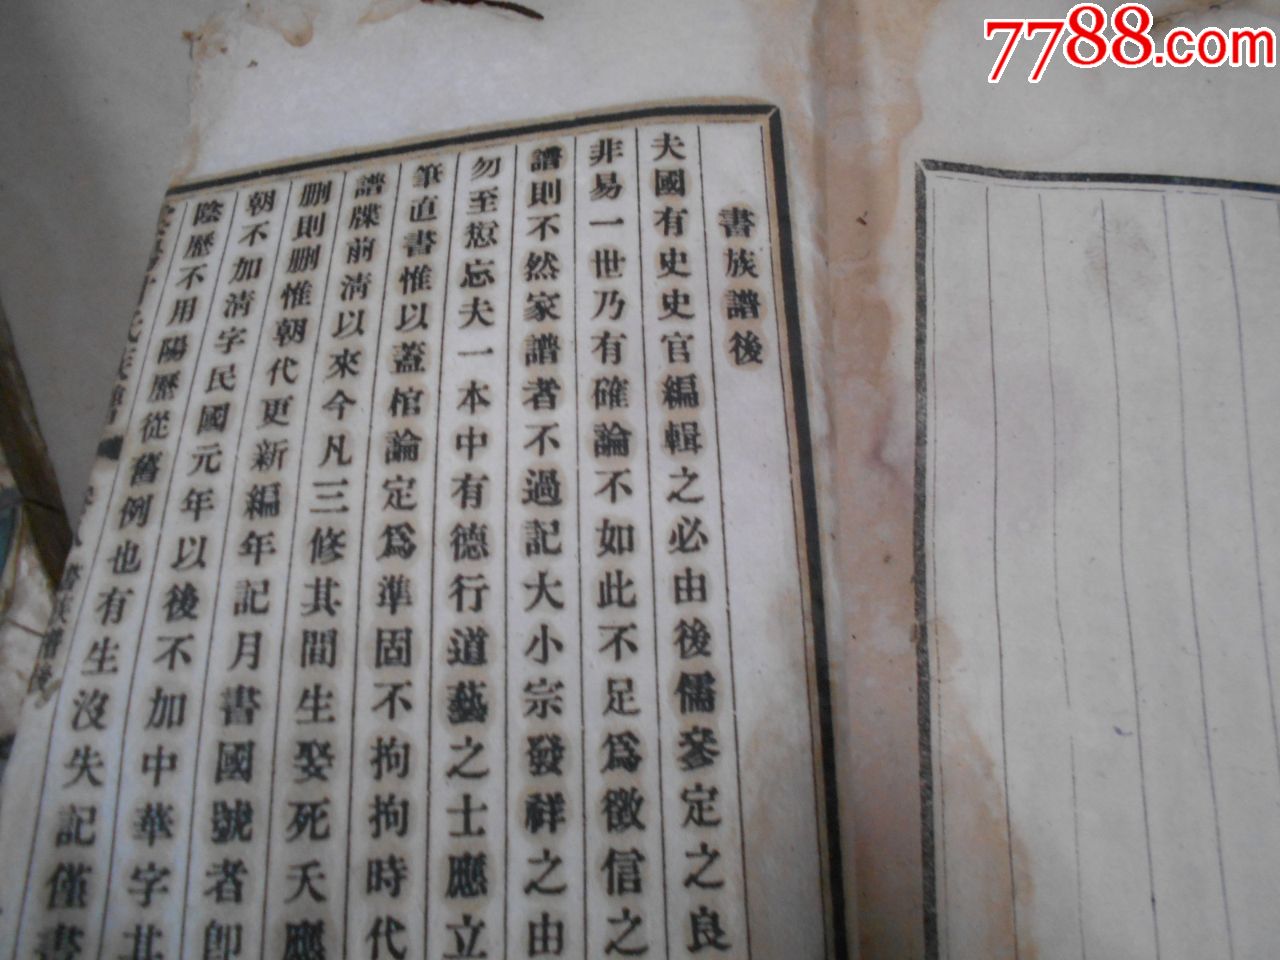 7788.com
書族譜後
夫國有史史官編輯之必由後儒參定之良
非易一世乃有確論不如此不足爲徵信之
譜則不然家譜者不過記大小宗發祥之由
勿至愆忘夫一本中有德行道藝之士應立
筆直書惟以蓋棺論定爲準固不拘拘時代
譜牒前清以來今凡三修其間生娶死夭應
刪則刪惟朝代更新編年記月書國號者卽
朝不加清字民國元年以後不加中華字其
陰歷不用陽歷從舊例也有生沒失記僅書
氏族譜
書族譜後